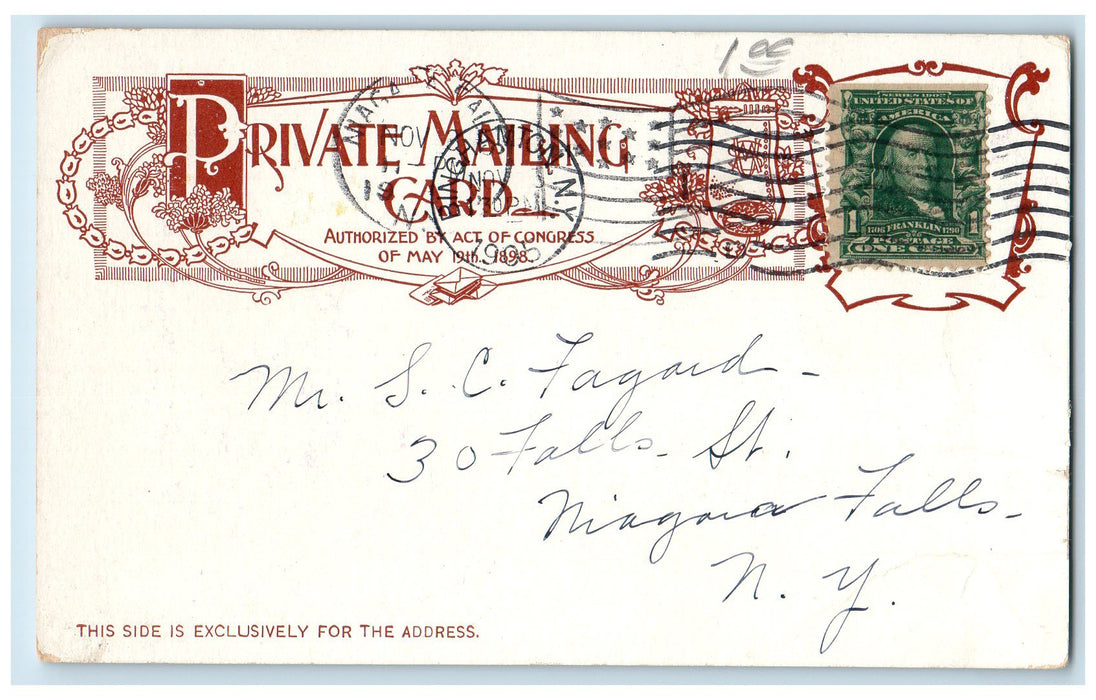 1 00
PRIVATE MAILING
CARD
AUTHORIZED BY ACT OF CONGRESS
OF MAY 19th. 1898.
NOV
BINGHAMTON, N.Y.
NOV
1905
SERIES 1902
UNITED STATES OF
AMERICA
1706 FRANKLIN 1790
1 POSTAGE 1
ONE CENT
Mr. S. C. Fagard -
30 Falls. St.
Niagara Falls.
N. Y.
THIS SIDE IS EXCLUSIVELY FOR THE ADDRESS.